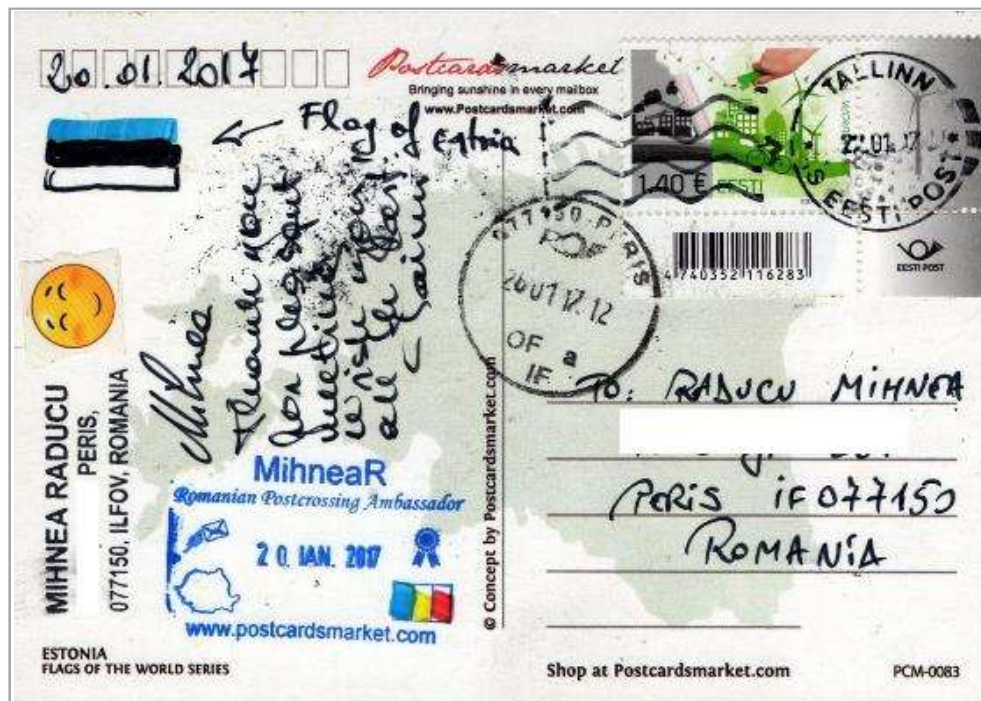 20.01.2017
Postcardsmarket
Bringing sunshine in every mailbox
www.Postcardsmarket.com
← Flag of
Estonia
TALLINN
01 17
EESTI POST
1.40 € EESTI
EESTI POST
4 740352 116283
077150 PERIS
26 01 17.12
OF a
IF
Mihnea
all the best
MIHNEA RADUCU
PERIS,
077150, ILFOV, ROMANIA
MihneaR
Romanian Postcrossing Ambassador
20. IAN. 2017
www.postcardsmarket.com
© Concept by Postcardsmarket.com
TO: RADUCU MIHNEA
PERIS IF 077150
ROMANIA
ESTONIA
FLAGS OF THE WORLD SERIES
Shop at Postcardsmarket.com
PCM-0083